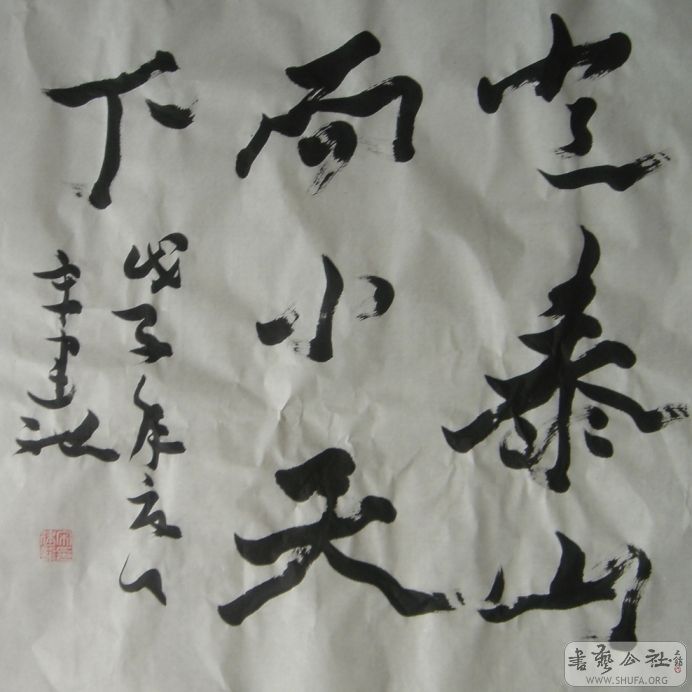 登泰山
而小天
下
戊子年
書藝公社
WWW.SHUFA.ORG